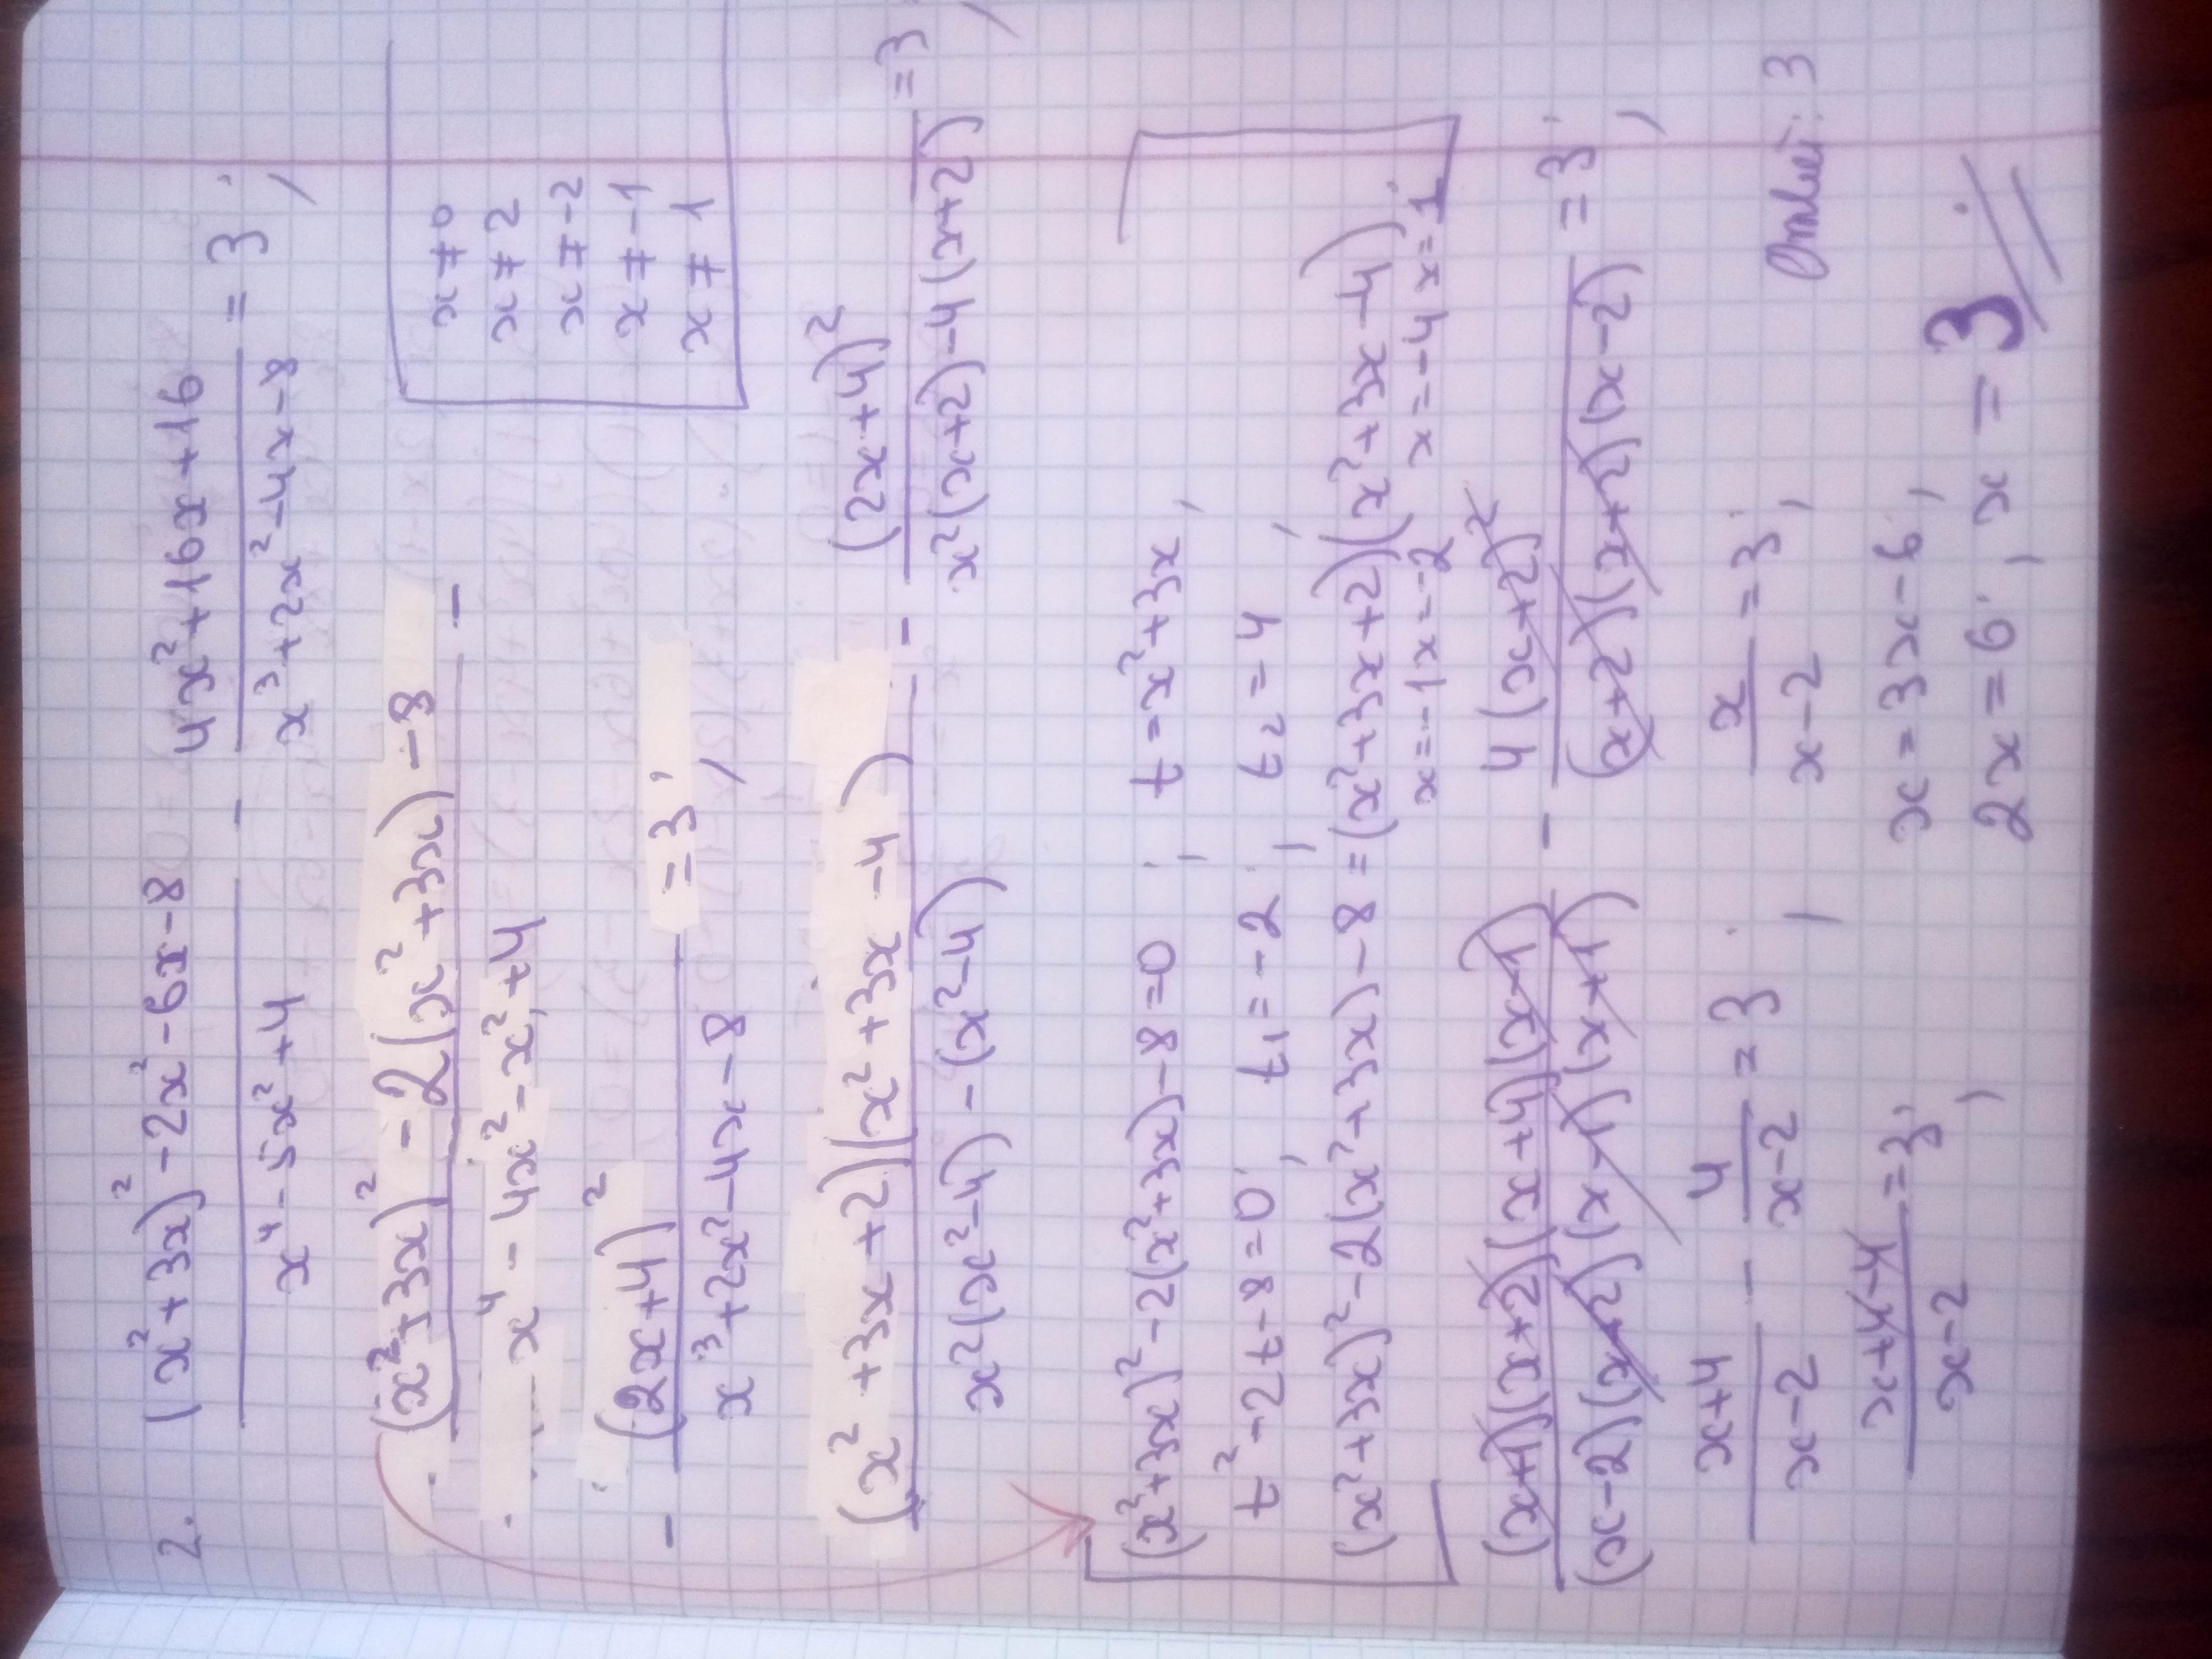 2. ((x²+3x)²-2x²-6x-8)/(x⁴-5x²+4) - (4x²+16x+16)/(x³+2x²-4x-8) = 3;
((x²+3x)²-2(x²+3x)-8)/(x⁴-4x²-x²+4) -
x≠0
x≠2
x≠-2
x≠-1
x≠1
- (2x+4)²/(x³+2x²-4x-8) = 3;
((x²+3x+2)(x²+3x-4))/(x²(x²-4)-(x²-4)) - (2x+4)²/(x²(x+2)-4(x+2)) = 3;
(x²+3x)²-2(x²+3x)-8=0; t=x²+3x,
t²-2t-8=0; t₁=-2; t₂=4;
(x²+3x)²-2(x²+3x)-8=(x²+3x+2)(x²+3x-4)
x=-1 x=-2 x=-4 x=1
((x+1)(x+2)(x+4)(x-1))/((x-2)(x+2)(x-1)(x+1)) - 4(x+2)²/((x+2)(x+2)(x-2)) = 3;
(x+4)/(x-2) - 4/(x-2) = 3; x/(x-2) = 3;
Ответ: 3
(x+4-4)/(x-2) = 3; x=3x-6;
2x=6; x=3